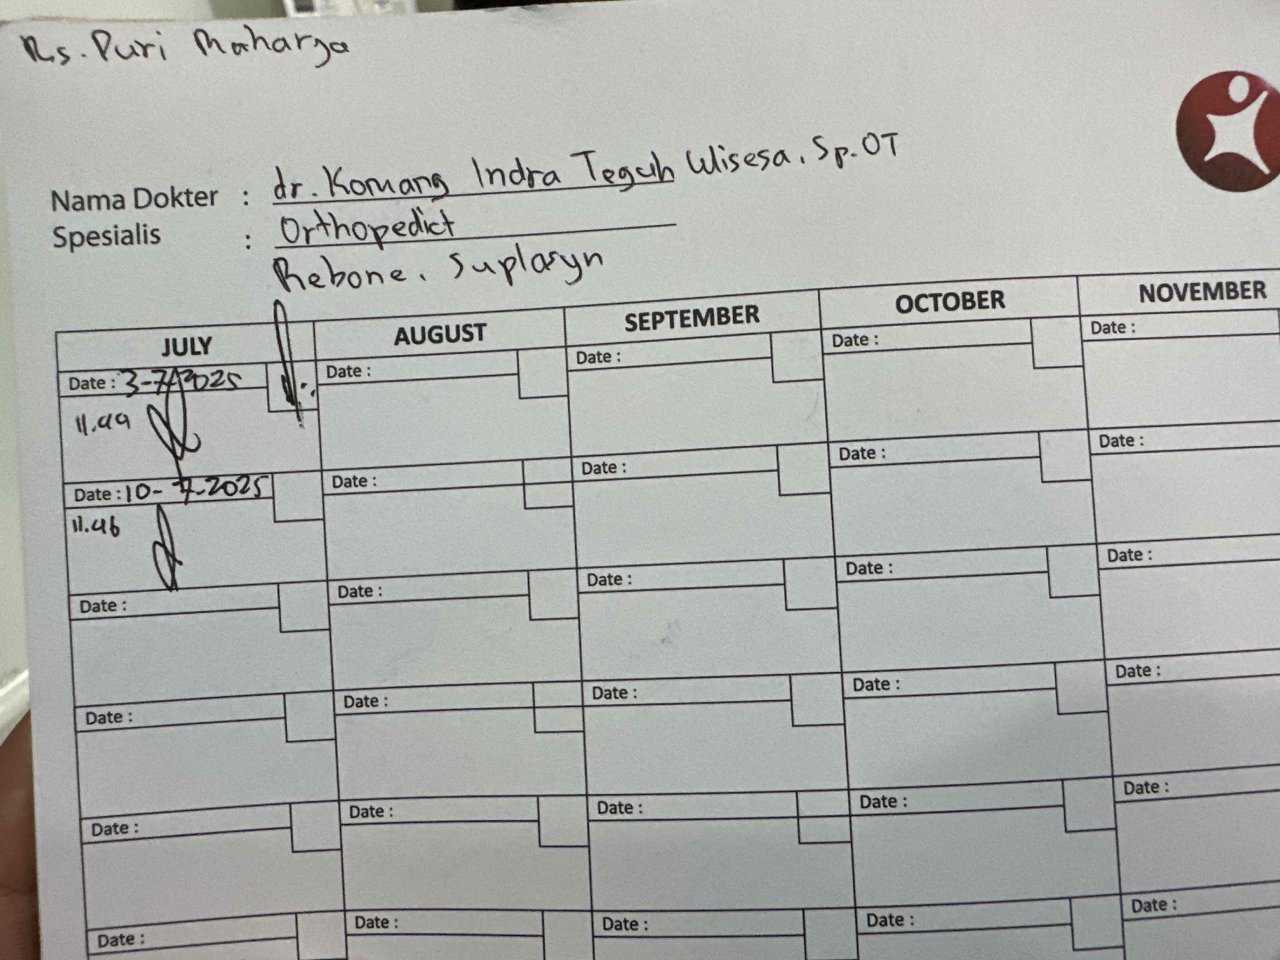 Rs. Puri Raharja
Nama Dokter : dr. Komang Indra Teguh Wisesa, Sp.OT
Spesialis : Orthopedict
Rebone, Suplasyn
JULY AUGUST SEPTEMBER OCTOBER NOVEMBER
Date : 3-7-2025 Date : Date : Date : Date :
11.49
Date : 10-7-2025 Date : Date : Date : Date :
11.46
Date : Date : Date : Date : Date :
Date : Date : Date : Date : Date :
Date : Date : Date : Date : Date :
Date : Date : Date : Date : Date :